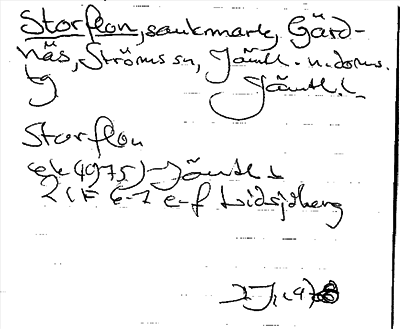 Storflon, sankmark, Gärd-
näs, Ströms sn, Jämtl. n. doms.
tg Jämtl. L
Storflon
ek (4975) - Jämtl L
21F 6-7 e-f Lidsjöberg